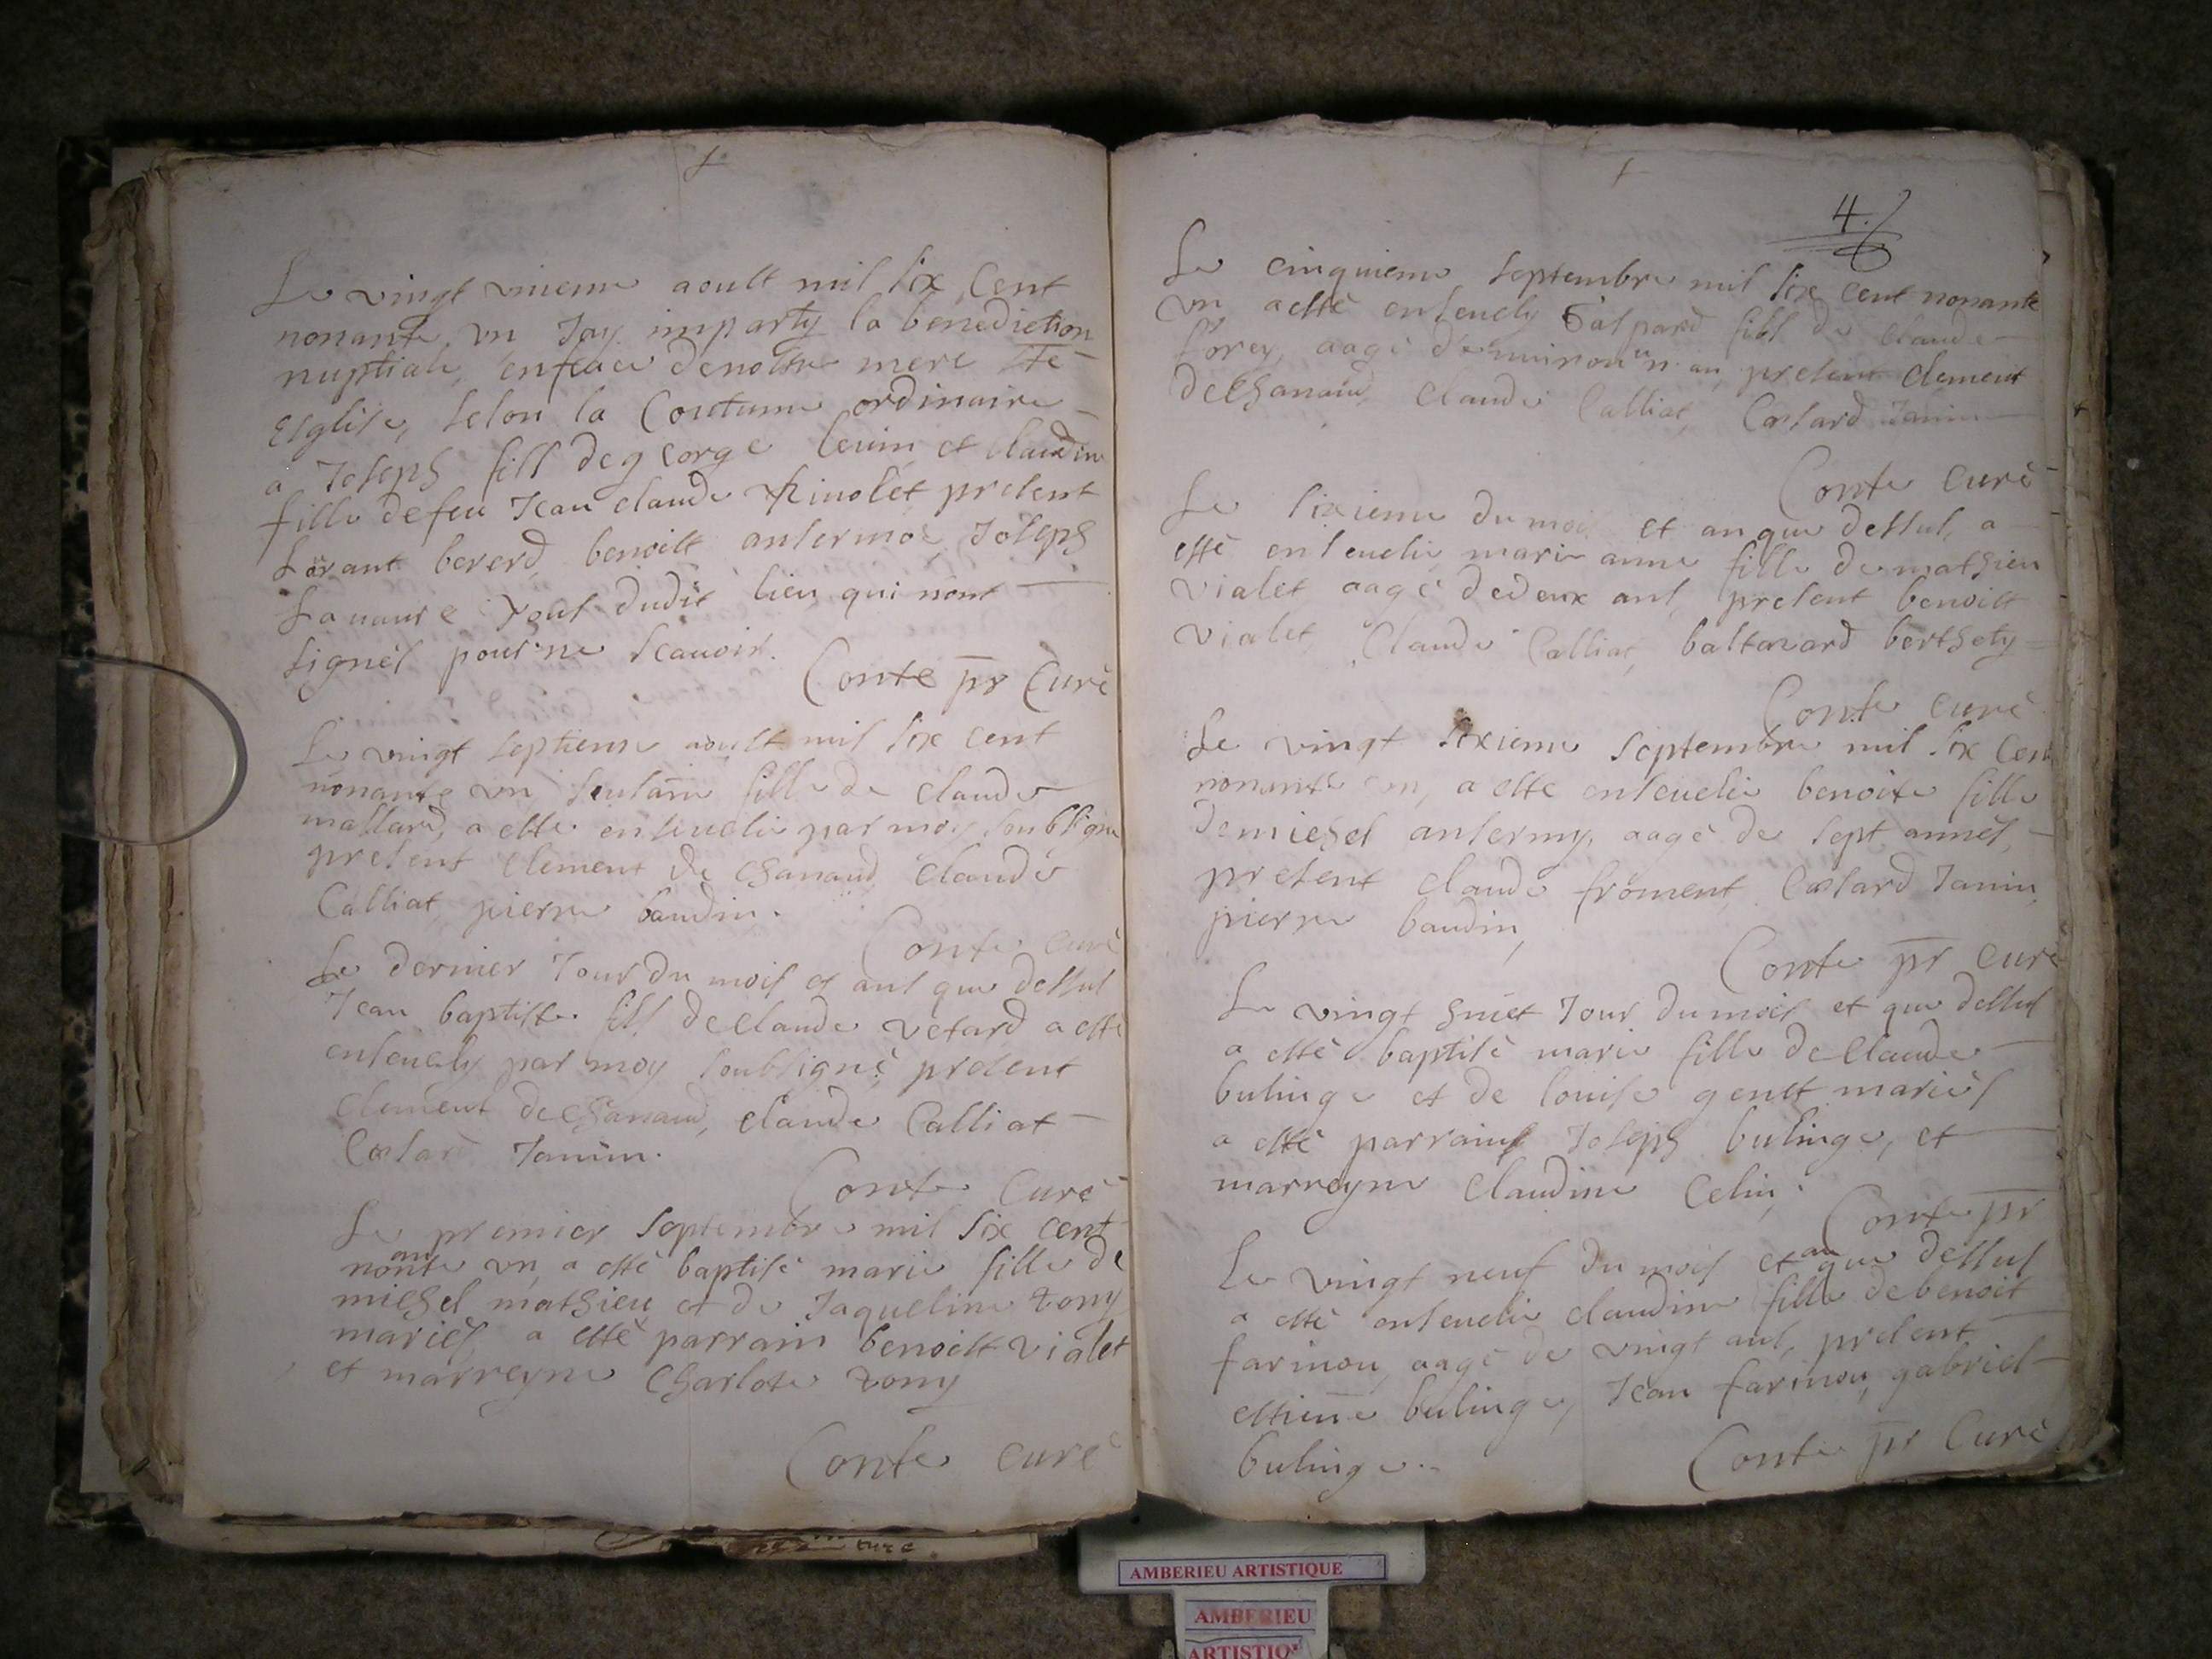 Le vingt unieme aoust mil six Cent
nonante un Jay imparty la benediction
nuptiale, enface denostre mere ste
esglise, selon la Coutume ordinaire
a Joseph fils degeorge levin et Claudine
fille defeu Jean claude Rivolet present
Lorant bererd, benoist ansermoe, Joseph
Lavaure tous dudit lieu qui nont
signés pour ne scavoir.
Conte pr Curé
Le vingt septieme aoust mil six cent
nonante un fille de claude
mallard, a esté ensevelie par moy soubsigné
present clement de chanaud, claude
Calliat, pierre baudin.
Conte curé
Le dernier Jour du mois et ans que dessus
Jean baptiste fils declaude vetard a esté
ensevely par moy soubsigné, present
clement dechanaud, claude Calliat
Cœsard Janin.
Conte Curé
Le premier septembre mil six cent
nonante un, a esté baptisé marie fille de
michel mathieu et de Jaqueline tony
mariés, a esté parrain benoist vialet
et marreyne charlote tony
Conte curé
4.
Le cinquieme septembre mil six cent nonante
un a esté ensevely Gaspard fils de claude
forey, aagé denviron un an, present clement
dechanaud, claude Calliat, Cœsard Janin
Conte curé
Le sixieme du mois et an que dessus, a
esté ensevelie marie anne fille de mathieu
vialet aagé dedeux ans, present benoist
vialet, claude Calliat, baltazard berthety
Conte curé
Le vingt sixieme septembre mil six Cent
nonante un, a esté ensevelie benoite fille
demichel ansermy, aagé de sept années,
present claude froment Cœsard Janin,
pierre baudin,
Conte pr curé
Le vingt huict Jour du mois et que dessus
a esté baptisé marie fille declaude
bulinge et de louise genst mariés
a esté parrains Joseph bulinge, et
marreyne claudine Celin;
Conte pr
Le vingt neuf du mois et an que dessus
a esté ensevelie claudine fille debenoit
farinou, aagé de vingt ans, present
estienne bulinge, Jean farinou, gabriel
bulinge..
Conte pr Curé
curé
AMBERIEU ARTISTIQUE
AMBERIEU
ARTISTIQ